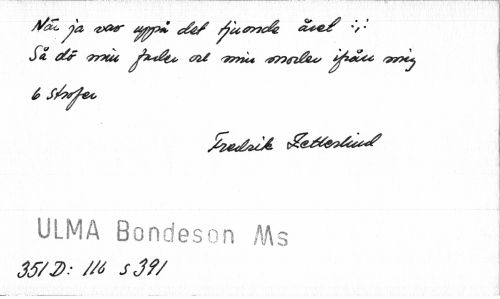 När ja var uppå det tjuonde året :,:
Så dö min fader och min moder ifrån mig
6 strofer
Fredrik Zetterlind
ULMA Bondeson Ms
351 D: 116 s 391